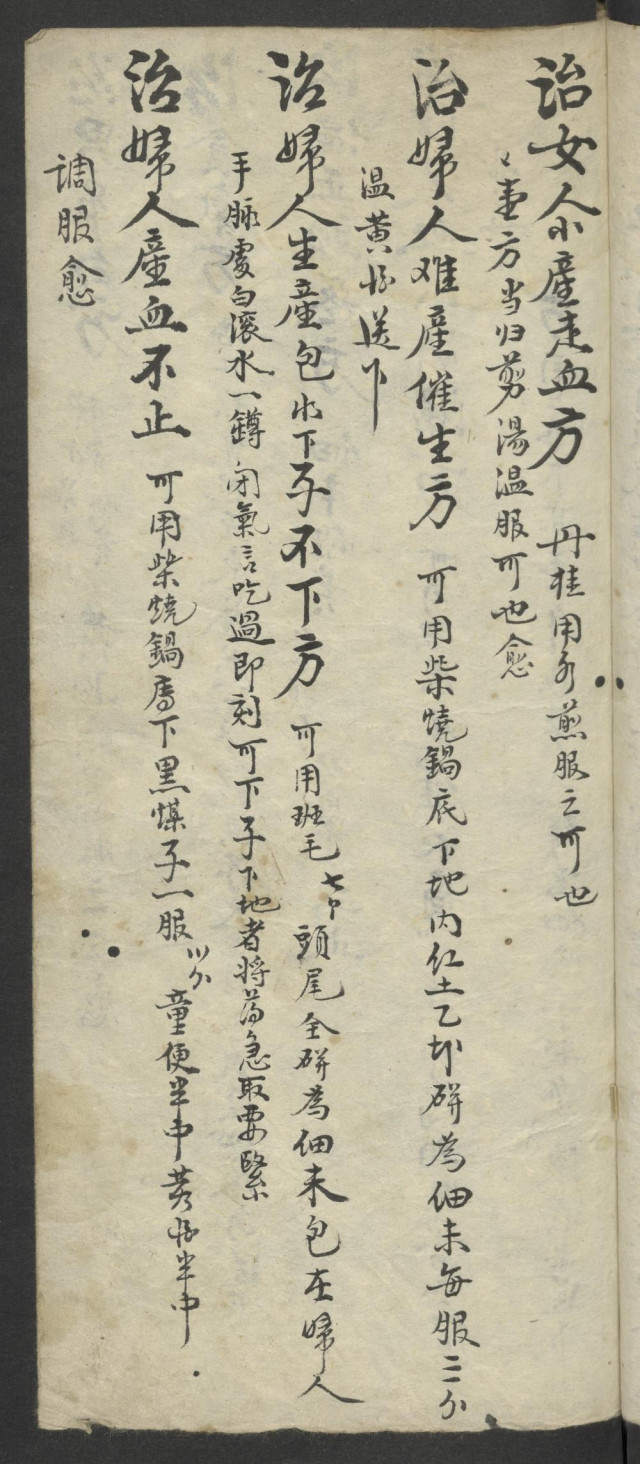 治女人小產走血方 丹桂用水煎服之可也
又壹方当归剪湯温服可也愈
治婦人难產催生方 可用柴燒鍋底下地内红土乙卜研為细末每服二三分
温黄酒送下
治婦人生產包水下子不下方 可用班毛七个頭尾全研為细末包在婦人
手脉處白滚水一鐏闭氣言吃過即刻可下子下地者將葯急取要緊
治婦人產血不止 可用柴燒鍋底下黑煤子一服川分童便半中黄酒半中
调服愈